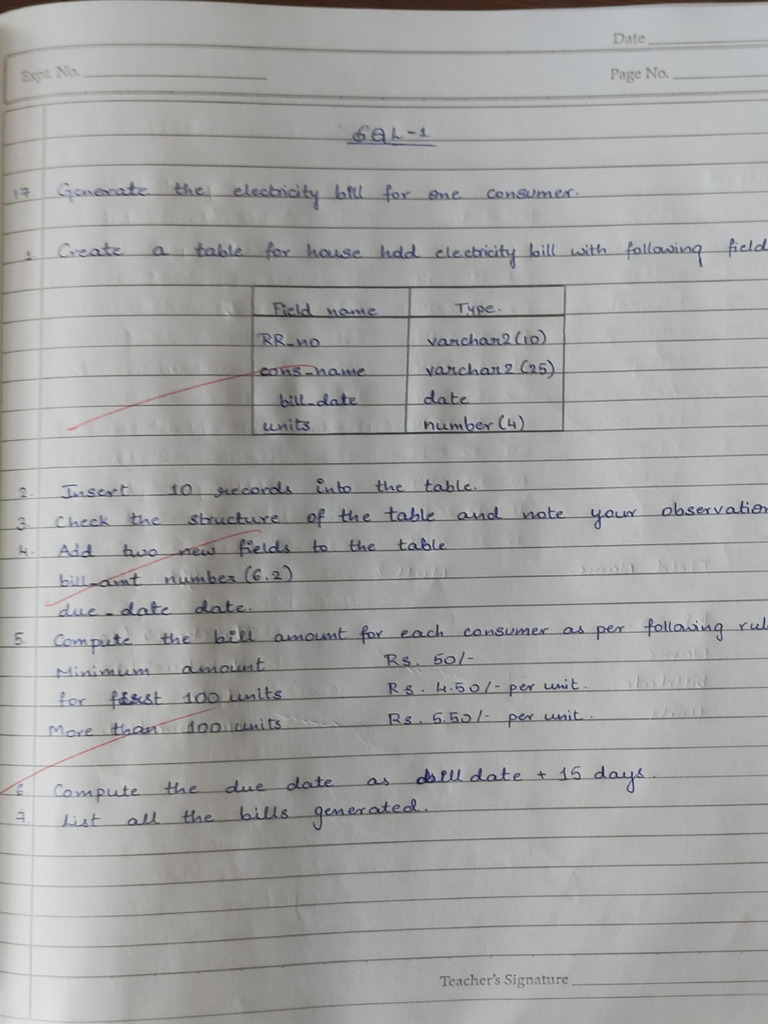 Date
Expt. No.
Page No.
SQL-1
17 Generate the electricity bill for one consumer.
1. Create a table for house hdd electricity bill with following field
Field name Type.
RR_no varchar2(10)
cons_name varchar2(25)
bill_date date
units number(4)
2. Insert 10 records into the table.
3. Check the structure of the table and note your observation
4. Add two new fields to the table
bill_amt number(6,2)
due_date date.
5. Compute the bill amount for each consumer as per following rul
Minimum amount Rs. 50/-
for first 100 units Rs. 4.50/- per unit.
More than 100 units Rs. 5.50/- per unit.
6. Compute the due date as bill date + 15 days.
7. List all the bills generated.
Teacher's Signature